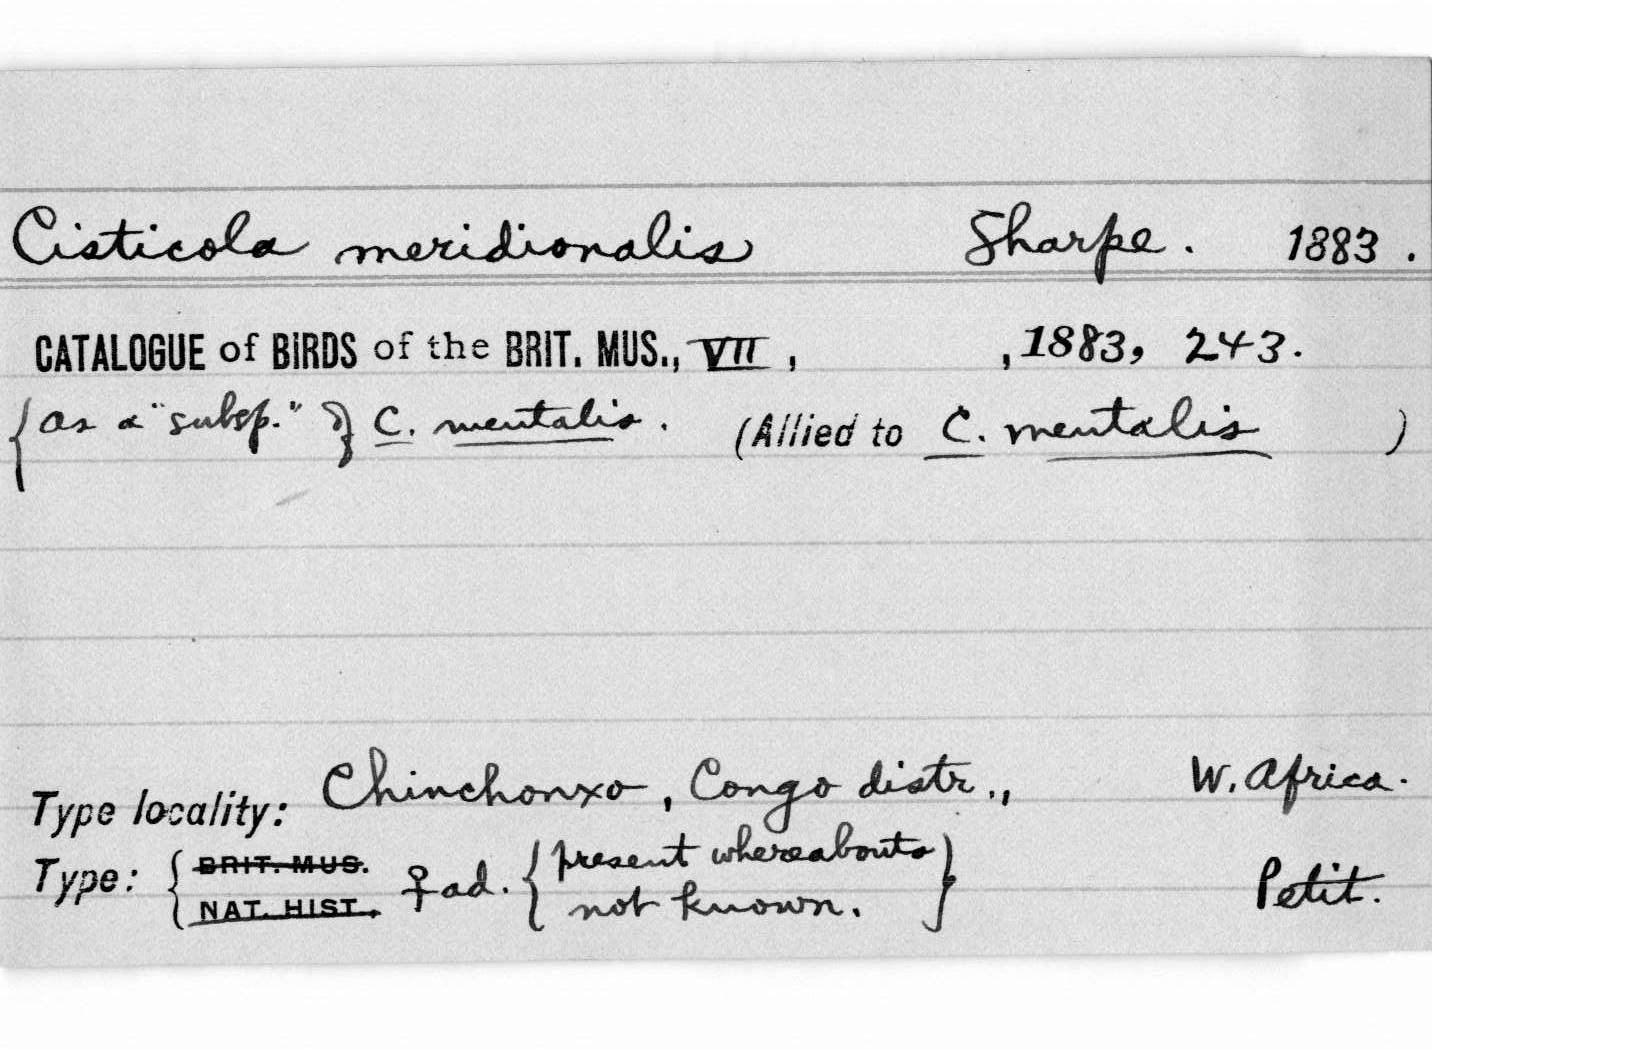 Cisticola meridionalis Sharpe. 1883.
CATALOGUE of BIRDS of the BRIT. MUS., VII, , 1883, 243.
{as a "subsp." of C. mentalis. (Allied to C. mentalis )
Type locality: Chinchonxo, Congo distr., W. Africa.
Type: { BRIT. MUS. NAT. HIST., ♀ ad. {present whereabouts not known.} Petit.